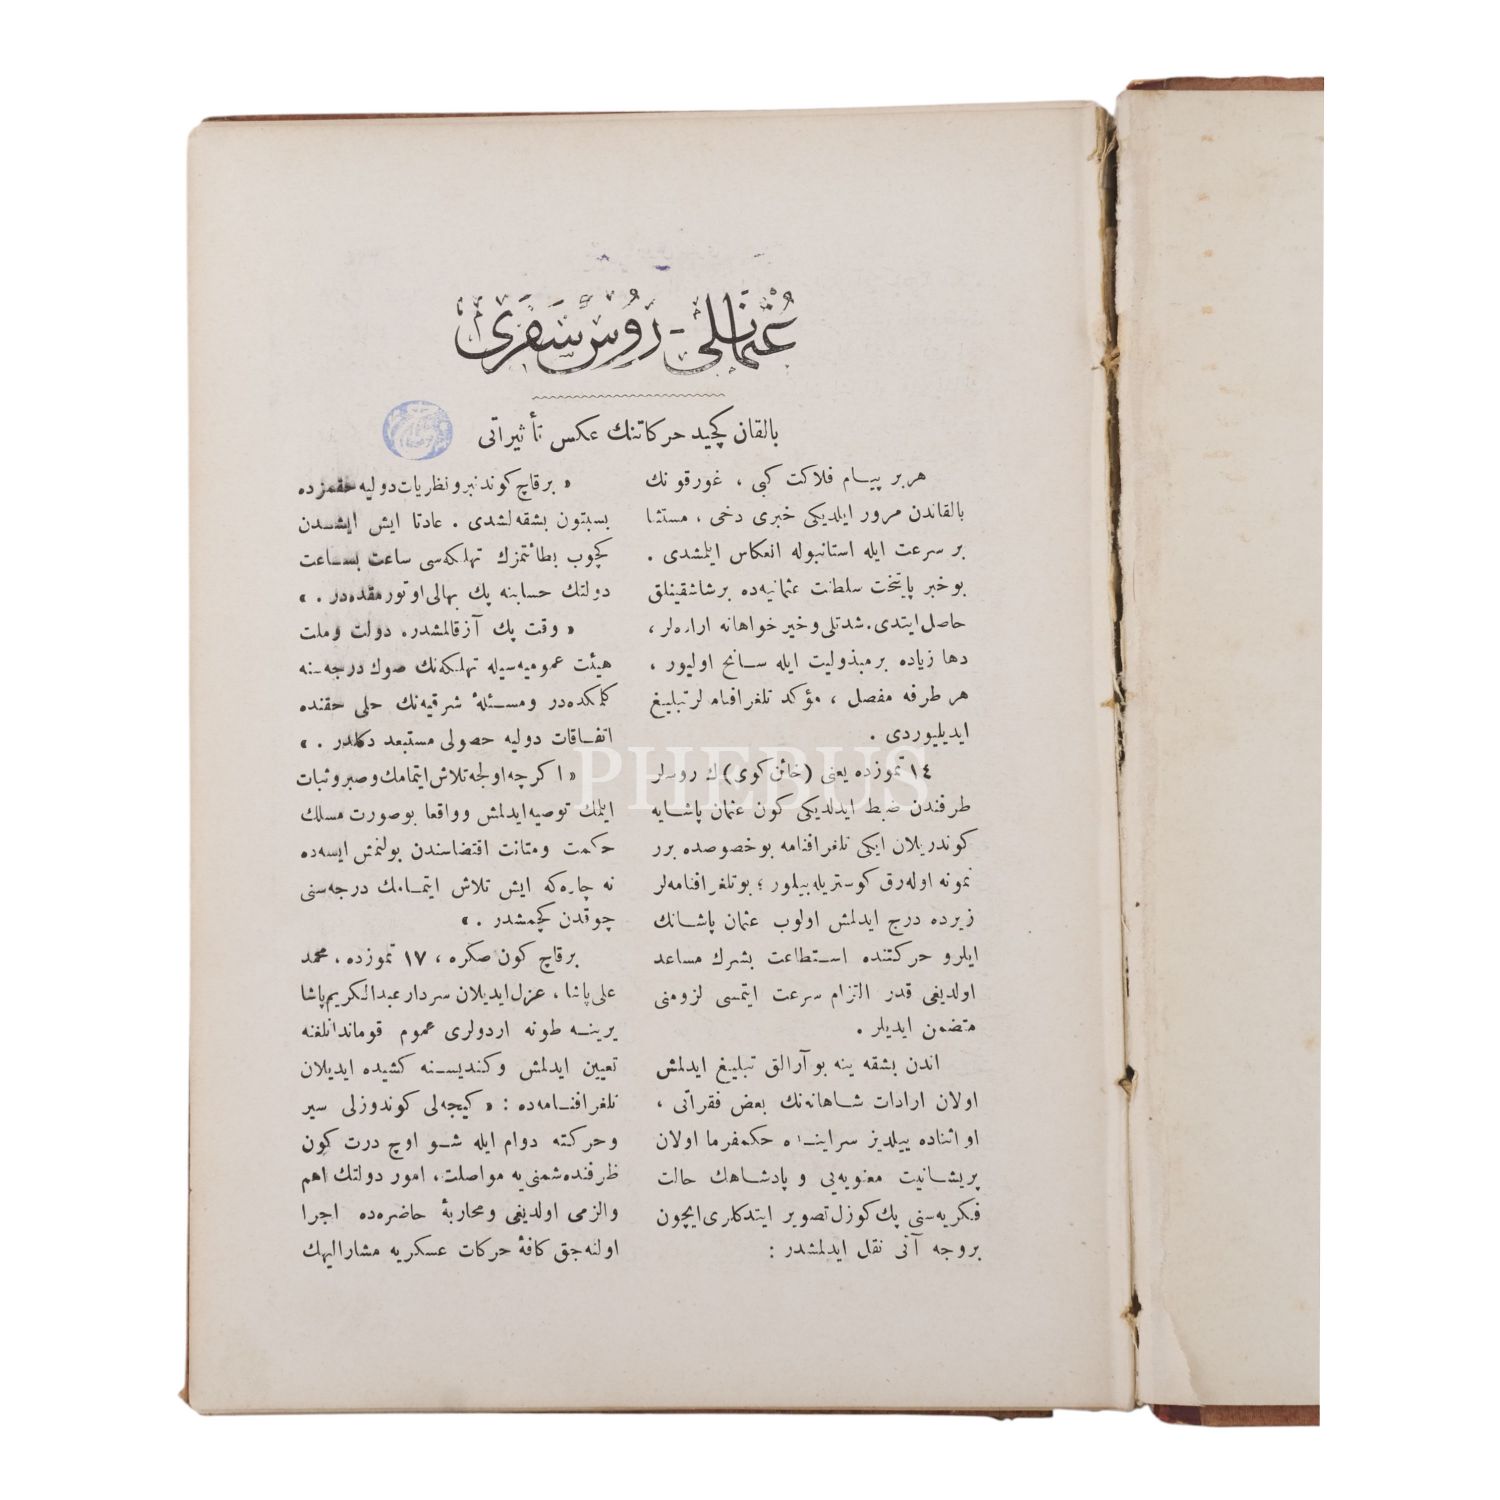 عثمانلی - روس سفری
بالقان كچيد حركاتنك عكس تأثيراتی
هربر پيام فلاكت كبی ، غورقونك
بالقاندن مرور ايلديكی خبری دخی ، مستثنا
بر سرعت ايله استانبوله انعكاس ايلمشدی .
بوخبر پايتخت سلطنت عثمانيه‌ده برشاشقينلق
حاصل ايتدی. شدتلی وخير خواهانه اراده‌لر ،
دها زياده برمبذوليت ايله سانح اوليور ،
هر طرفه مفصل ، مؤكد تلغرافنامه‌لر تبليغ
ايديليوردی .
١٤ تموزده يعنی (خائن كوی) ك روسلر
طرفندن ضبط ايدلديكی كون عثمان پاشايه
كوندريلان ايكی تلغرافنامه بوخصوصده برر
نمونه اوله‌رق كوستريله‌بيلور ؛ بوتلغرافنامه‌لر
زيرده درج ايدلمش اولوب عثمان پاشانك
ايلرو حركتنده استطاعت بشرك مساعد
اولديغی قدر التزام سرعت ايتمسی لزومنی
متضمن ايديلر .
اندن بشقه ينه بوآرالق تبليغ ايدلمش
اولان ارادات شاهانه‌نك بعض فقراتی ،
اواثناده ييلديز سراينده حكمفرما اولان
پريشانيت معنويه‌يی و پادشاهك حالت
فكريه‌سنی پك كوزل تصوير ايتدكلری ايچون
بروجه آتی نقل ايدلمشدر :
« برقاچ كوندنبرو نظريات دوليه حقمزده
بسبتون بشقه‌لشدی . عادتا ايش ايشدن
كچوب بطائتمزك تهلكه‌سی ساعت بساعت
دولتك حسابنه پك بهالی اوتورمقده‌در . »
« وقت پك آز قالمشدره دولت وملت
هيئت عموميه‌سيله تهلكه‌نك صوك درجه‌سنه
كلمكده‌در ومسئلهٔ شرقيه‌نك حلی حقنده
اتفاقات دوليه حصولی مستبعد دكلدر . »
« اكرچه اولجه تلاش ايتمامك وصبر وثبات
ايلمك توصيه ايدلمش وواقعا بوصورت مسلك
حكمت ومتانت اقتضاسندن بولنمش ايسه‌ده
نه چاره‌كه ايش تلاش ايتمامك درجه‌سنی
چوقدن كچمشدر . »
برقاچ كون صكره ، ١٧ تموزده ، محمد
علی پاشا ، عزل ايديلان سردار عبدالكريم پاشا
يرينه طونه اردولری عموم قوماندانلغنه
تعيين ايدلمش وكنديسنه كشيده ايديلان
تلغرافنامه‌ده : « كيجه‌لی كوندوزلی سير
وحركته دوام ايله شو اوچ درت كون
ظرفنده شمنی‌يه مواصلت ، امور دولتك اهم
والزمی اولديغی ومحاربهٔ حاضره‌ده اجرا
اولنه‌جق كافهٔ حركات عسكريه مشاراليهك
PHEBUS